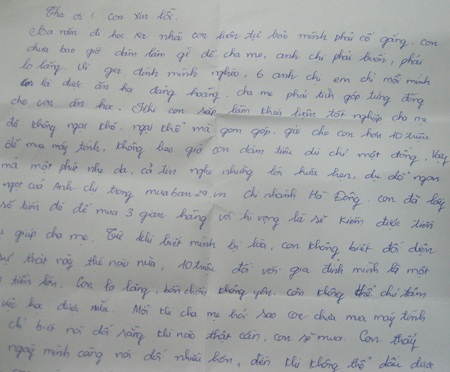 Cha ơi! Con xin lỗi.
Ba năm đi học xa nhà con luôn tự bảo mình phải cố gắng. Con
chưa bao giờ dám làm gì để cha mẹ, anh chị phải buồn, phải
lo lắng. Vì gia đình mình nghèo, 6 anh chị em chỉ mỗi mình
con là được ăn học đàng hoàng. cha mẹ phải tích góp từng đồng
cho con ăn học. Khi con sắp làm khoá luận tốt nghiệp cha mẹ
đã không ngại khó, ngại khổ mà gom góp, gửi cho con hơn 10 triệu
để mua máy tính, không bao giờ con dám tiêu dù chỉ một đồng. Vậy
mà một phút nhẹ dạ, cả tin nghe những lời hứa hẹn, dụ dỗ ngon
ngọt của Anh chị trong muaban24.vn chi nhánh Hà Đông. con đã lấy
số tiền đó để mua 3 gian hàng với hi vọng là sẽ kiếm được tiền
giúp cha mẹ. Từ khi biết mình bị lừa, con không biết đối diện
sự thật này thế nào nữa, 10 triệu đối với gia đình mình là một
tiền lớn. Con lo lắng, bồn chồn không yên. Con không thể chú tâm
việc học được nữa. Mỗi khi cha mẹ hỏi sao con chưa mua máy tính
chỉ biết nói dối rằng khi nào thật cần, con sẽ mua. Con thấy
ngày mình càng nói dối nhiều hơn, đến khi không thể dấu được